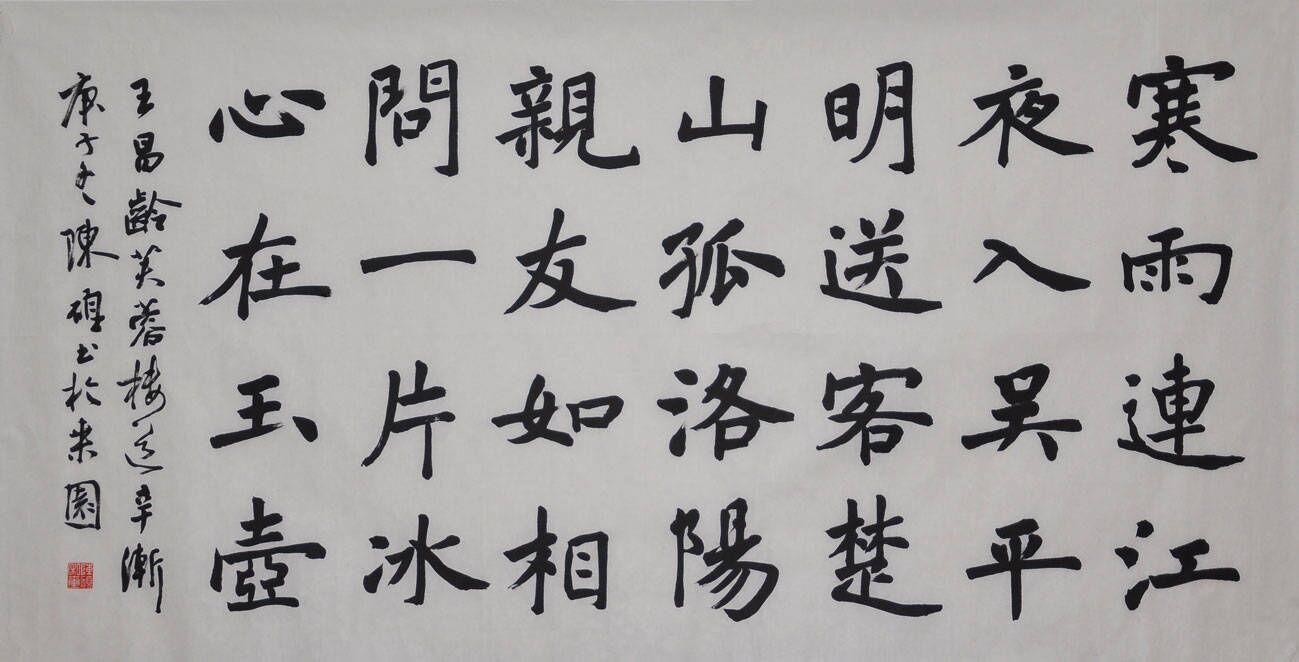 寒雨連江
夜入吴平
明送客楚
山孤洛陽
親友如相
問一片冰
心在玉壺
王昌齡芙蓉樓送辛漸
庚子冬陳书於園